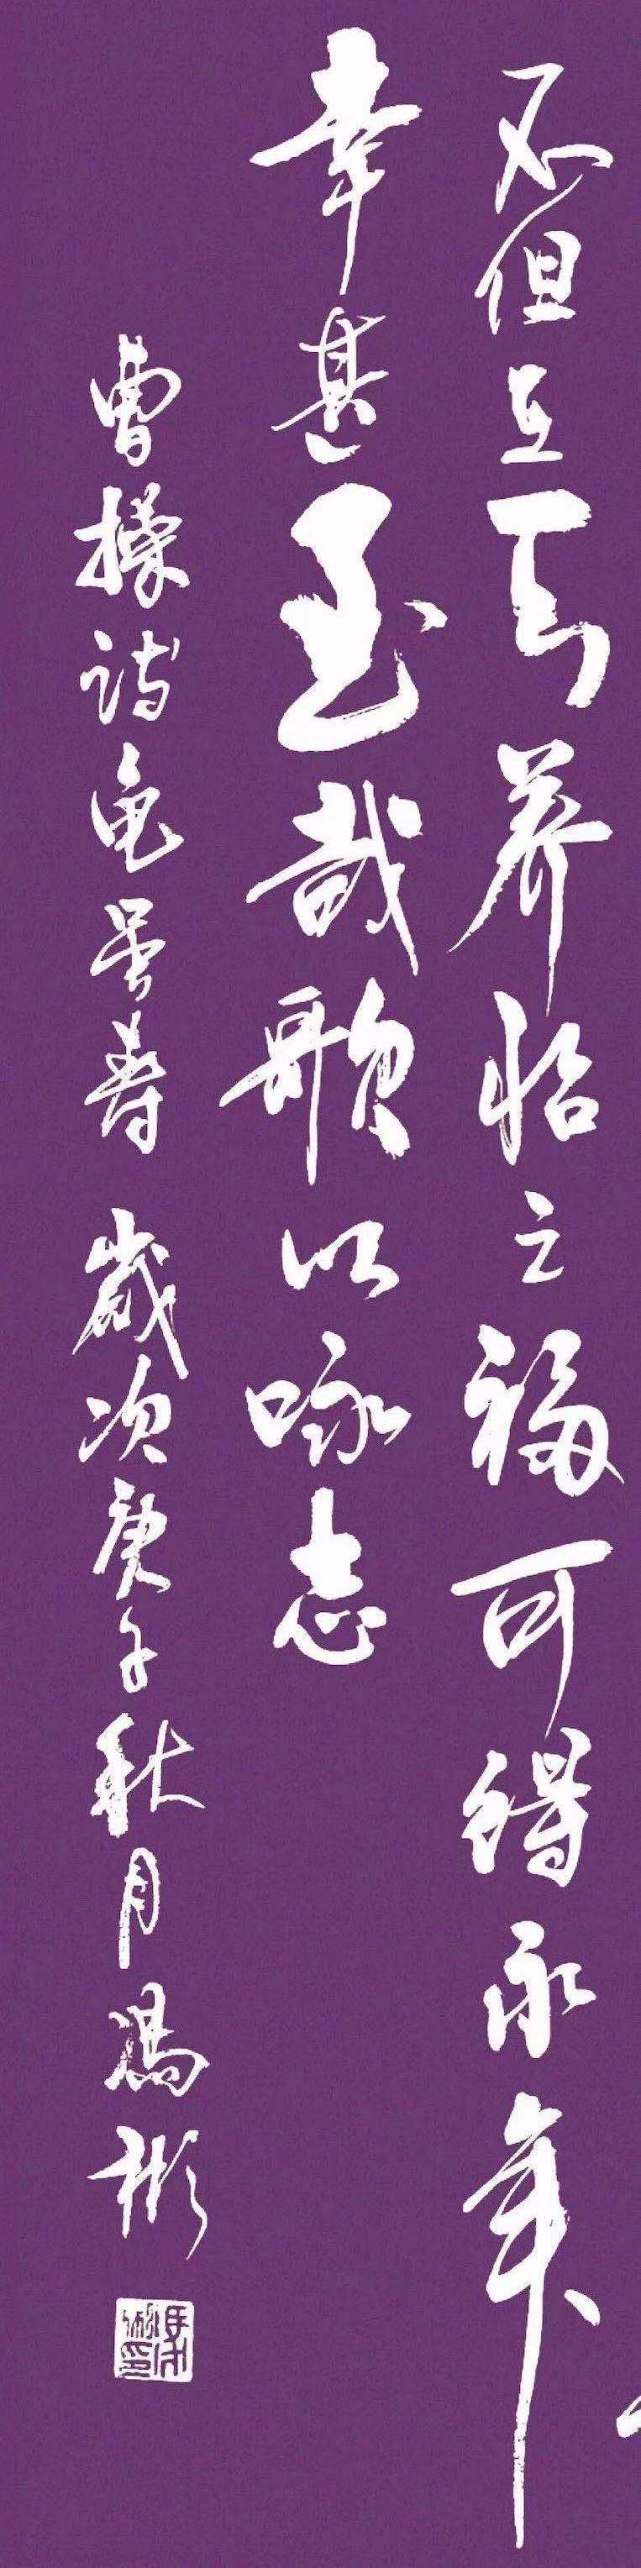 不但在天养怡之福可得永年
幸甚至哉歌以咏志
曹操诗龟虽寿 岁次庚子秋月冯彬